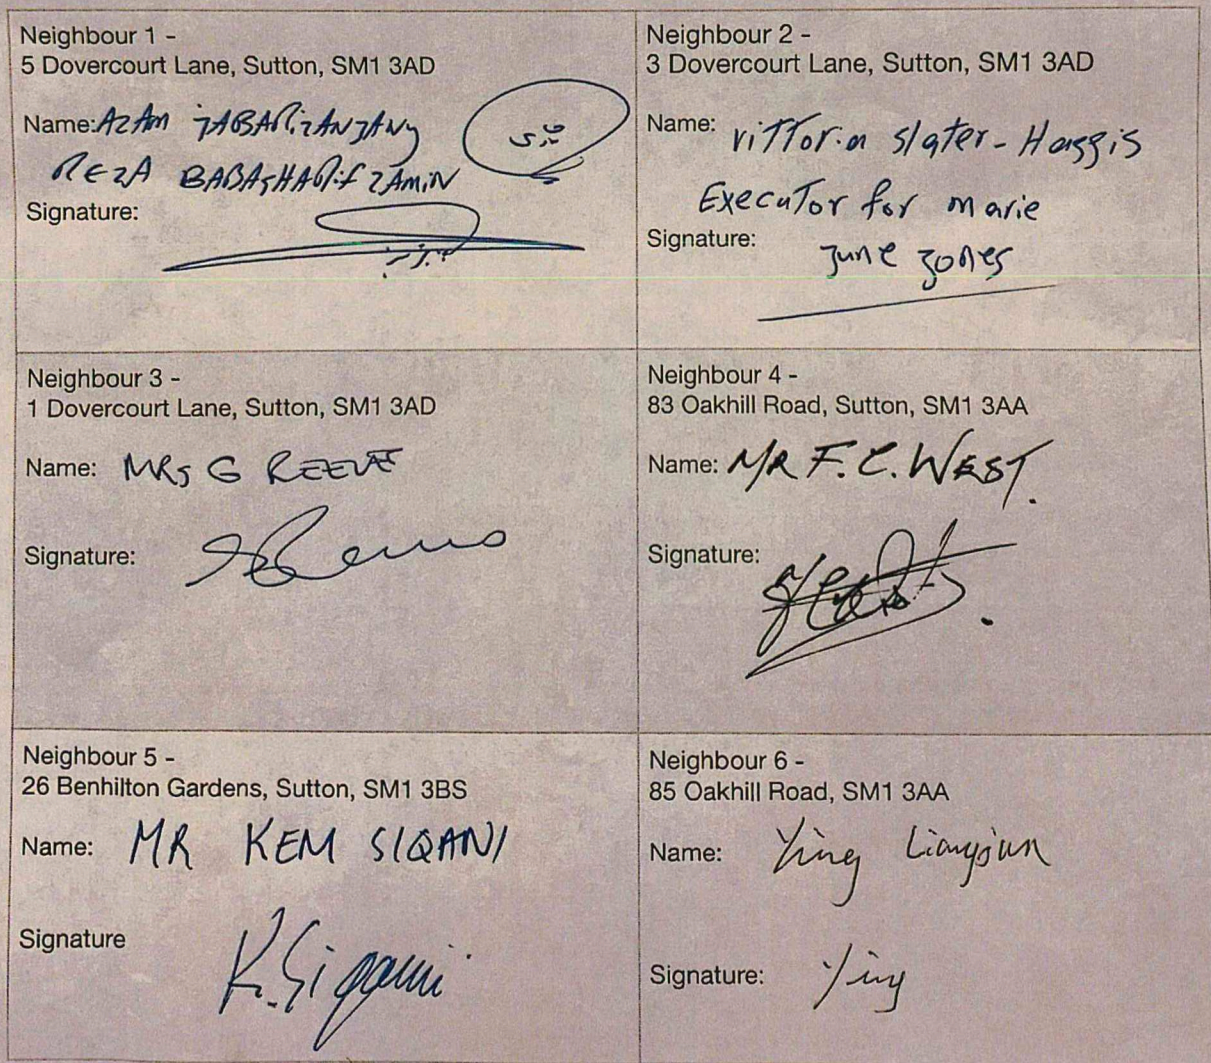 Neighbour 1 -
5 Dovercourt Lane, Sutton, SM1 3AD
Name: AZAM JABARIZANJANY
REZA BABASHARIF ZAMIN
Signature:
Neighbour 2 -
3 Dovercourt Lane, Sutton, SM1 3AD
Name: Vittoria Slater-Haggis
Executor for Marie
Signature: June Jones
Neighbour 3 -
1 Dovercourt Lane, Sutton, SM1 3AD
Name: MRS G REEVE
Signature:
Neighbour 4 -
83 Oakhill Road, Sutton, SM1 3AA
Name: MR F.C. WEST.
Signature:
Neighbour 5 -
26 Benhilton Gardens, Sutton, SM1 3BS
Name: MR KEM SIQANI
Signature K. Siqani
Neighbour 6 -
85 Oakhill Road, SM1 3AA
Name: Ying Liangjun
Signature: Ying